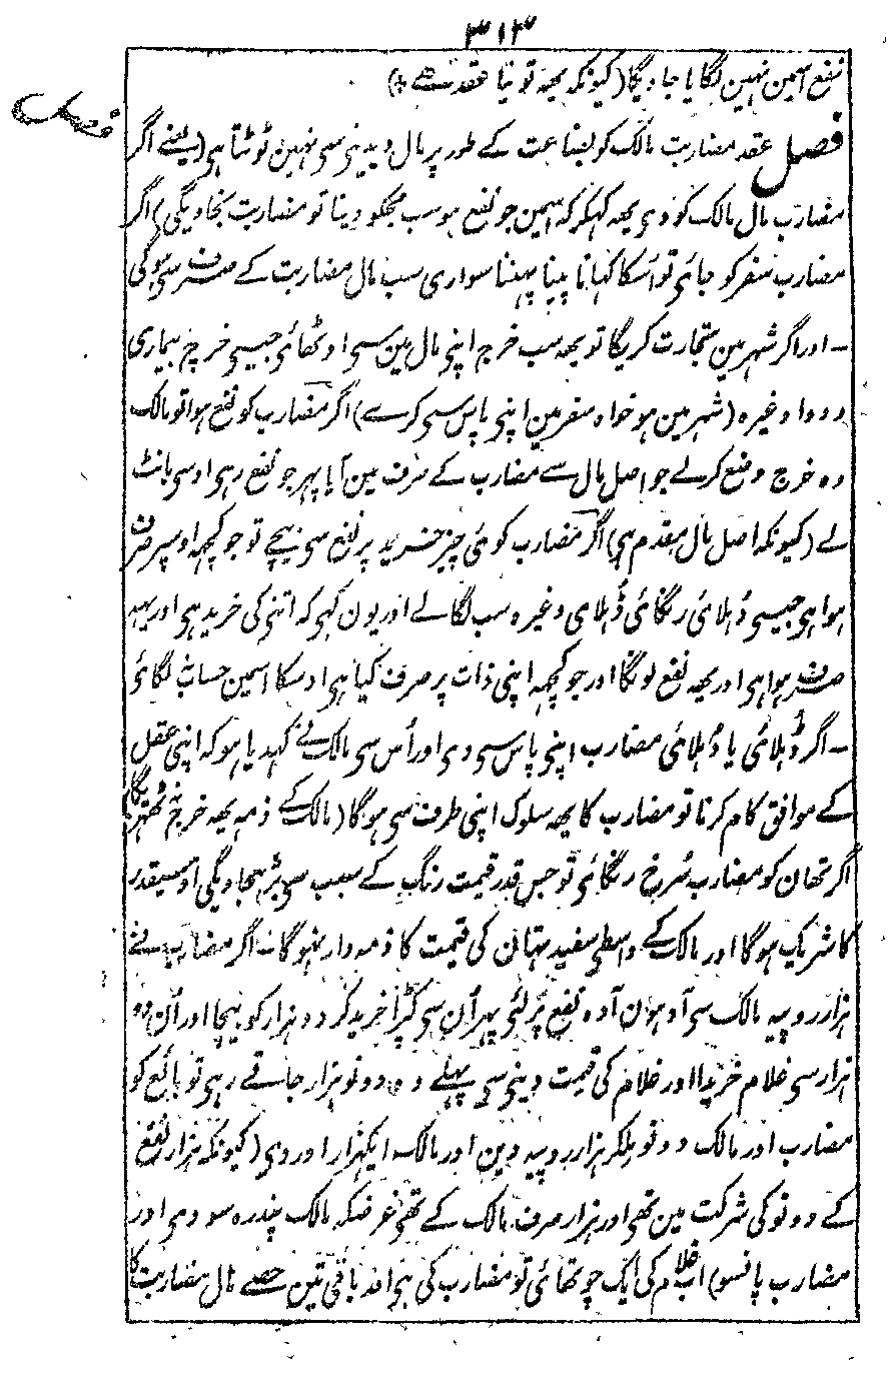 ۳۱۳
نفع اسمین نہین لگایا جاویگا (کیونکہ یہہ تو نیا عقد ہے)
فصل
فصل عقد مضاربت مالک کو بضاعت کے طور پر مال دیدینی سی نہین ٹوٹتا ہی (یعنے اگر
مضارب مال مالک کو دی یہہ کہکر کہ اسمین جو نفع ہو سب مجکو دینا تو مضاربت نجاویگی) اگر
مضارب سفر کو جائی تو اسکا کہانا پینا پہننا سواری سب مال مضاربت کے صرف سی ہوگی
۔ اور اگر شہر مین تجارت کریگا تو یہہ سب خرج اپنی مال مین سی اوٹھائی جیسی خرچ بیماری
و دوا وغیرہ (شہر مین ہو خواہ سفر مین اپنی پاس سی کرے) اگر مضارب کو نفع ہوا تو مالک
وہ خرج وضع کر لے جو اصل مال سے مضارب کے صرف مین آیا پہر جو نفع رہی اوسی بانٹ
لے (کیونکہ اصل مال مقدم ہی) اگر مضارب کوئی چیز خرید پر نفع سی بیچے تو جو کچہہ اوسپر صرف
ہوا ہی جیسی دُہلائی رنگائی ڈُہلائی وغیرہ سب لگالے اور یون کہی کہ اتنی کی خرید ہی اور یہہ
صرف ہوا ہی اور یہہ نفع لونگا اور جو کچہہ اپنی ذات پر صرف کیا ہی اوسکا اسمین حساب نلگائی
۔ اگر ڈُہلائی یا دُہلائی مضارب اپنی پاس سی دی اور اُس سی مالک نے کہدیا ہو کہ اپنی عقل
کے موافق کام کرنا تو مضارب کا یہہ سلوک اپنی طرف سی ہوگا (مالک کے ذمہ یہہ خرچ نہ ٹھہریگا)
اگر تھان کو مضارب سُرخ رنگائی تو جس قدر قیمت رنگ کے سبب سی بڑہجاویگی اوسیقدر
کا شریک ہوگا اور مالک کے واسطی سفید تہان کی قیمت کا ذمہ دار نہوگا ۔ اگر مضارب نے
ہزار روپیہ مالک سی آدہون آدہ نفع پر لئی پہر اُن سی کپڑا خرید کر دو ہزار کو بیچا اور اُن دو
ہزار سی غلام خریدا اور غلام کی قیمت دینی سی پہلے وہ دونو ہزار جاتے رہی تو بائع کو
مضارب اور مالک دونو ملکر ہزار روپیہ دین اور مالک ایکہزار اور دی (کیونکہ ہزار نفع
کے دونو کی شرکت مین تھی اور ہزار صرف مالک کے تھی غرضکہ مالک پندرہ سو دی اور
مضارب پانسو) اب غلام کی ایک چوتھائی تو مضارب کی ہی اور باقی تین حصے مال مضاربت کا